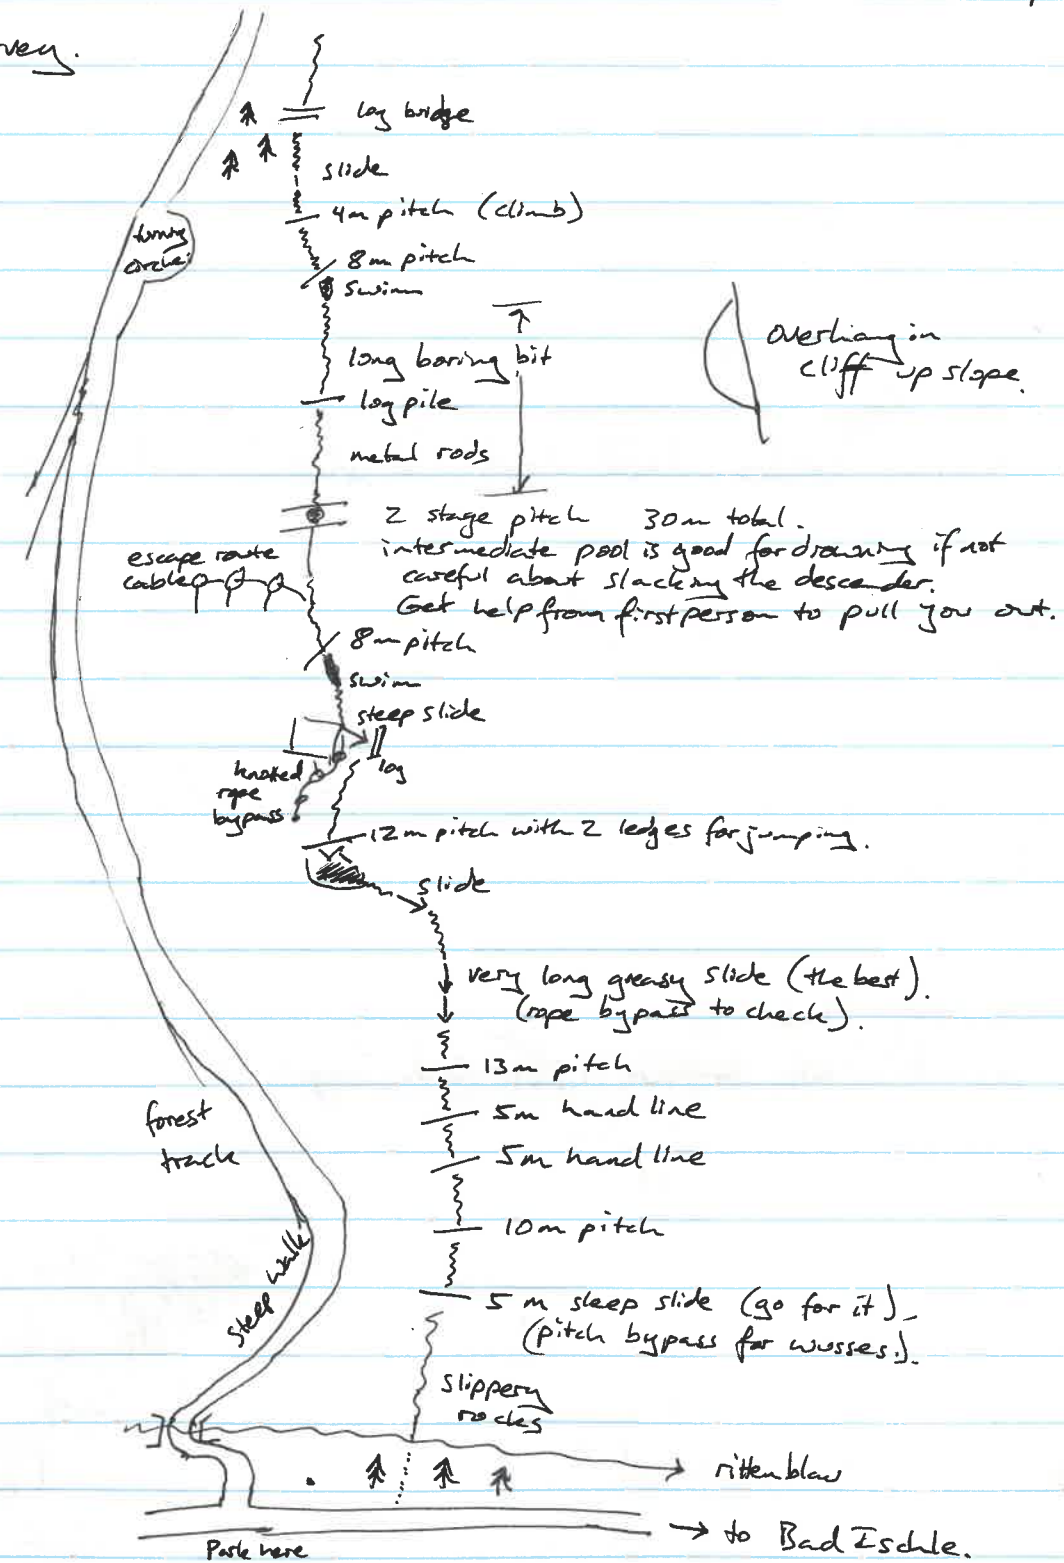 log bridge
slide
4m pitch (climb)
turning
circle
8m pitch
swim
overhang in
cliff up slope.
long boring bit
log pile
metal rods
2 stage pitch 30m total.
intermediate pool is good for drowning if not
careful about slacking the descender.
Get help from first person to pull you out.
escape route
cable
8m pitch
swim
steep slide
log
knotted
rope
bypass
12m pitch with 2 ledges for jumping.
slide
very long greasy slide (the best).
(rope bypass to check).
13m pitch
5m hand line
forest
track
5m hand line
10m pitch
steep walk
5 m steep slide (go for it)
(pitch bypass for wusses.).
slippery
rocks
→ to Bad Ischle.
Park here